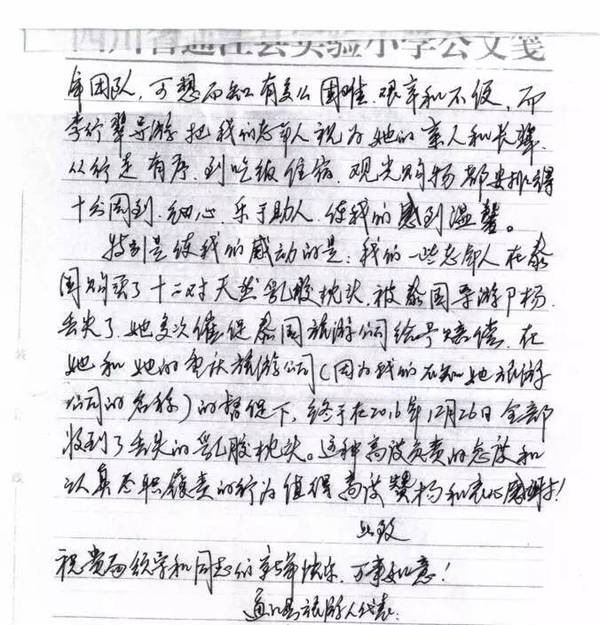 四川省通江县实验小学公文笺
年团队，可想而知有多么困难、艰辛和不便，而
李行翠导游把我们老年人视为她的亲人和长辈、
从行走有序、到吃饭住宿、观光购物都安排得
十分周到、细心、乐于助人、使我们感到温馨。
特别是使我们感动的是：我们一些老年人在泰
国购买了十二对天然乳胶枕头、被泰国导游
丢失了、她多次催促泰国旅游公司给予赔偿、在
她和她的重庆旅游公司（因为我们不知她旅游
公司的名称）的督促下，终于在2016年12月26日全部
收到了丢失的乳胶枕头。这种高度负责的态度和
认真尽职履责的行为值得高度赞扬和衷心感谢！
此致
祝贵局领导和同志们新年快乐、万事如意！
通江县旅游人代表：